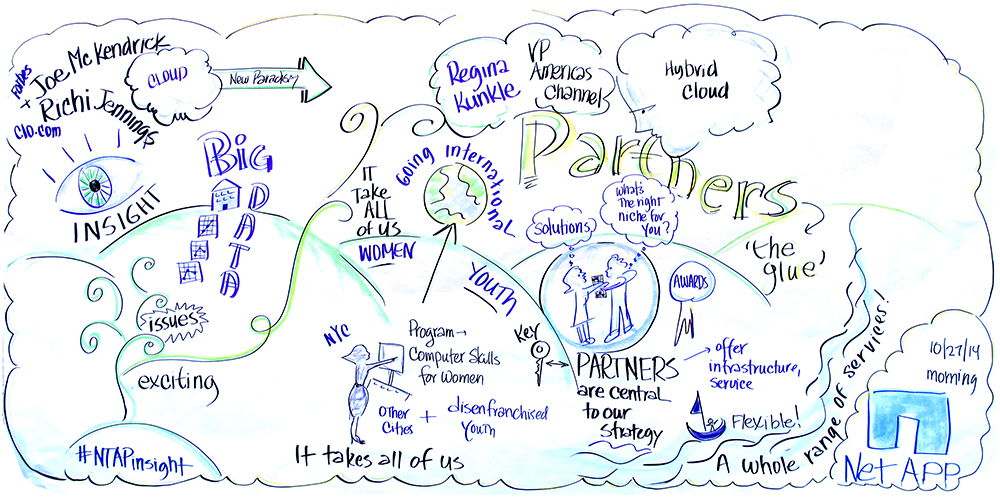 Forbes
Joe McKendrick
+ Richi Jennings
CIO.com
CLOUD
New Paradigm
INSIGHT
BiG
DATA
issues
exciting
#NTAPinsight
Regina
Kunkle
VP
Americas
Channel
Hybrid
Cloud
Partners
'the
glue'
Going International
IT
Take
ALL
of us
WOMEN
YOUTH
solutions
What's
The right
niche for
You?
AWARDS
NYC
Program →
Computer Skills
for Women
Other
Cities
+ disenfranchised
Youth
It takes all of us
Key
PARTNERS
are central
to our
strategy
→ offer
infrastructure,
service
Flexible!
A whole range of services!
10/27/14
morning
Net APP